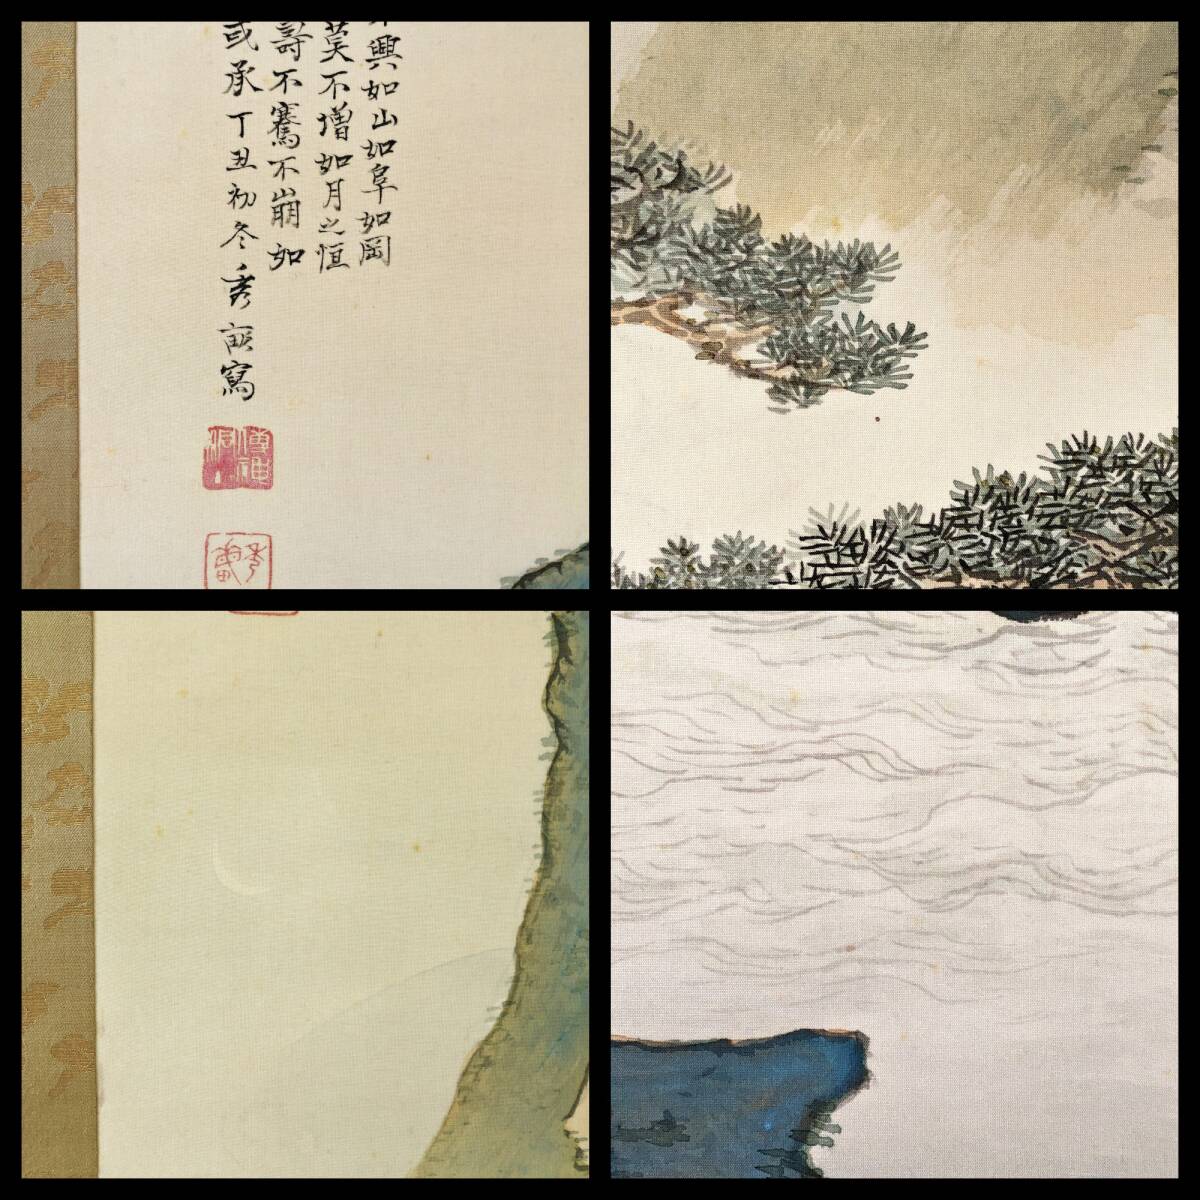 興如山如阜如岡
莫不增如月之恒
壽不騫不崩如
或承丁丑初冬秀畝寫
秀畝